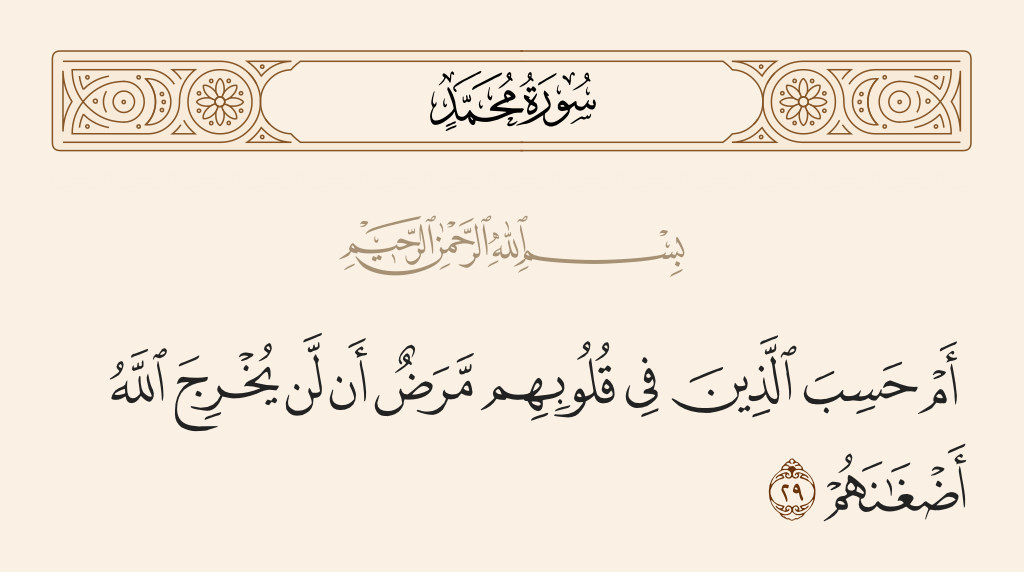 سُورَةُ مُحَمَّدٍ
بِسْمِ ٱللَّهِ ٱلرَّحْمَٰنِ ٱلرَّحِيمِ
أَمْ حَسِبَ ٱلَّذِينَ فِى قُلُوبِهِم مَّرَضٌ أَن لَّن يُخْرِجَ ٱللَّهُ
أَضْغَـٰنَهُمْ ٢٩